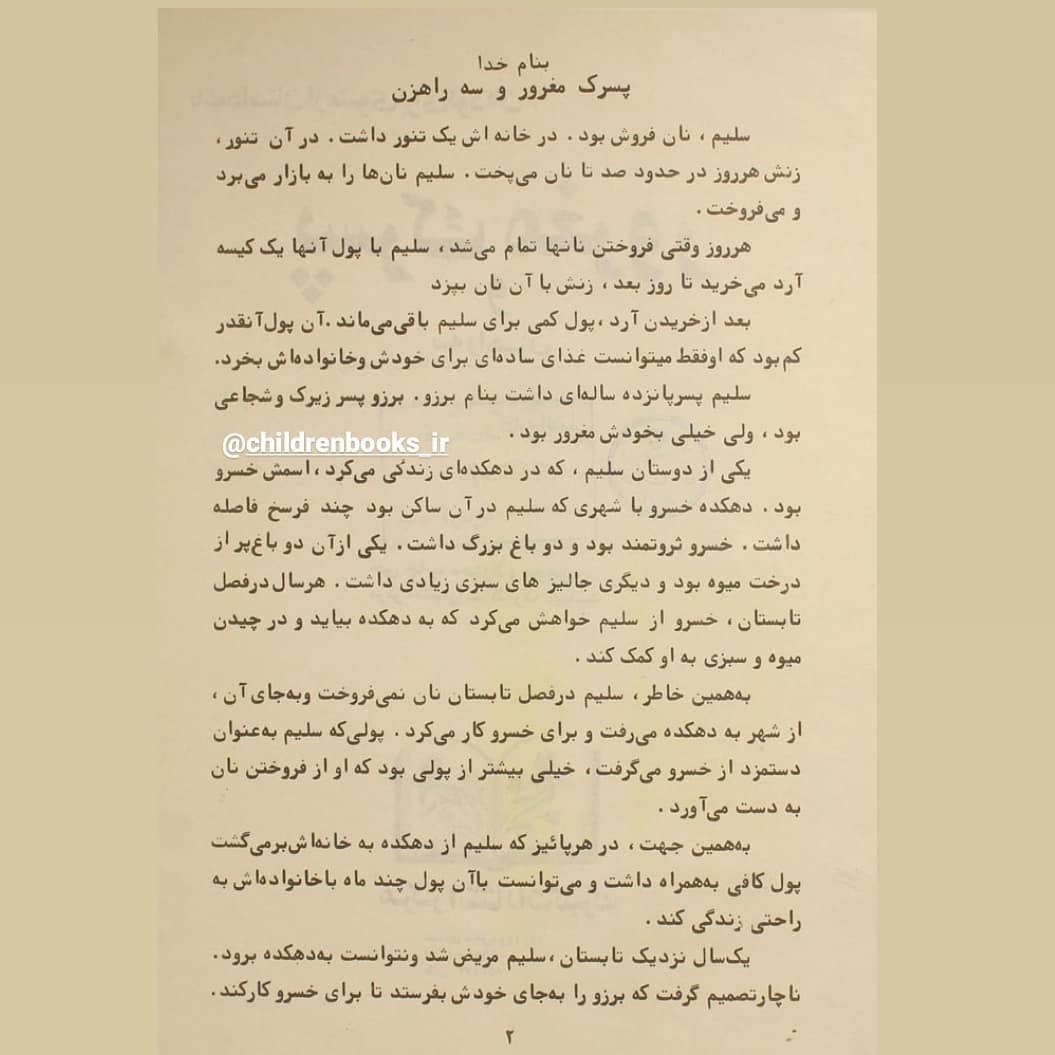 بنام خدا
پسرک مغرور و سه راهزن
سلیم ، نان فروش بود . در خانه اش یک تنور داشت . در آن تنور ،
زنش هرروز در حدود صد تا نان می‌پخت . سلیم نان‌ها را به بازار می‌برد
و می‌فروخت .
هرروز وقتی فروختن نانها تمام می‌شد ، سلیم با پول آنها یک کیسه
آرد می‌خرید تا روز بعد ، زنش با آن نان بپزد
بعد ازخریدن آرد ،پول کمی برای سلیم باقی‌می‌ماند .آن پول‌آنقدر
کم‌بود که اوفقط میتوانست غذای ساده‌ای برای خودش وخانواده‌اش بخرد.
سلیم پسرپانزده ساله‌ای داشت بنام برزو . برزو پسر زیرک وشجاعی
بود ، ولی خیلی بخودش مغرور بود .
@childrenbooks_ir
یکی از دوستان سلیم ، که در دهکده‌ای زندگی می‌کرد ، اسمش خسرو
بود . دهکده خسرو با شهری که سلیم در آن ساکن بود چند فرسخ فاصله
داشت . خسرو ثروتمند بود و دو باغ بزرگ داشت . یکی ازآن دو باغ‌پر از
درخت میوه بود و دیگری جالیز های سبزی زیادی داشت . هرسال درفصل
تابستان ، خسرو از سلیم خواهش می‌کرد که به دهکده بیاید و در چیدن
میوه و سبزی به او کمک کند .
به‌همین خاطر ، سلیم درفصل تابستان نان نمی‌فروخت وبه‌جای آن ،
از شهر به دهکده می‌رفت و برای خسرو کار می‌کرد . پولی‌که سلیم به‌عنوان
دستمزد از خسرو می‌گرفت ، خیلی بیشتر از پولی بود که او از فروختن نان
به دست می‌آورد .
به‌همین جهت ، در هرپائیز که سلیم از دهکده به خانه‌اش‌برمی‌گشت
پول کافی به‌همراه داشت و می‌توانست باآن پول چند ماه باخانواده‌اش به
راحتی زندگی کند .
یک‌سال نزدیک تابستان ،سلیم مریض شد ونتوانست به‌دهکده برود.
ناچارتصمیم گرفت که برزو را به‌جای خودش بفرستد تا برای خسرو کارکند .
۲